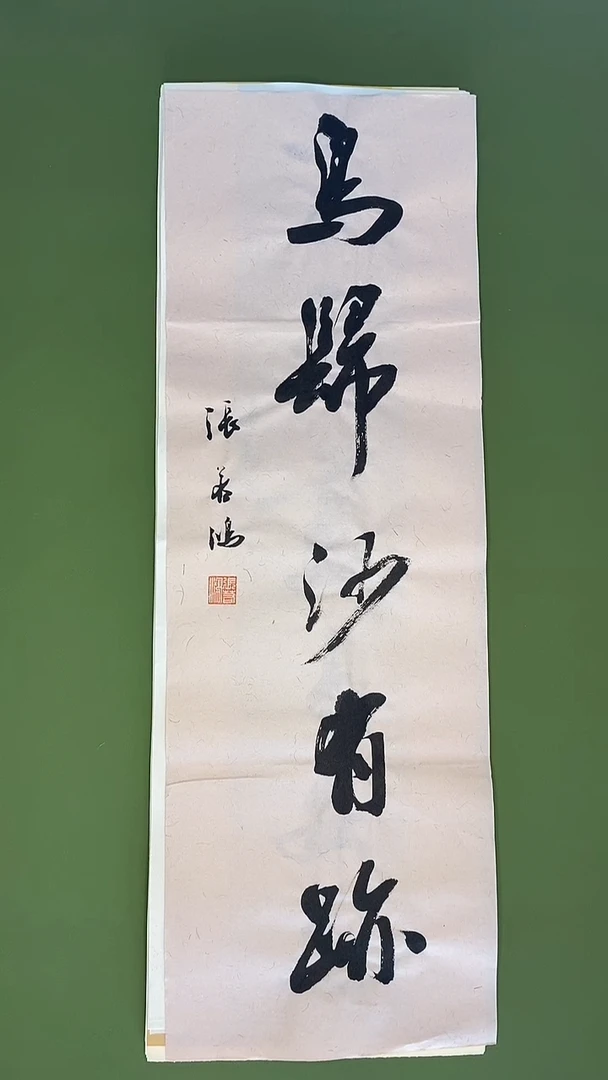 鳥歸沙有跡
張 鴻